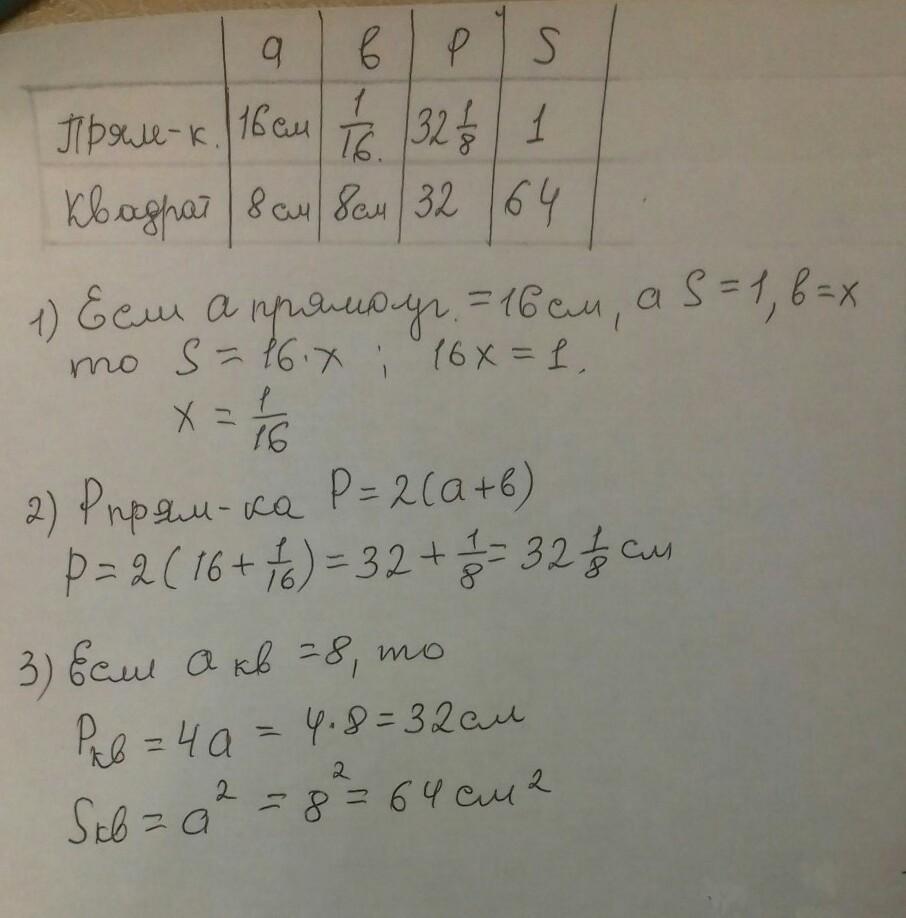 а в P S
Прям-к. 16см 1/16. 32 1/8 1
Квадрат 8см 8см 32 64
1) Если a прямоуг. = 16см, а S = 1, в = x
то S = 16·x ; 16x = 1.
x = 1/16
2) Pпрям-ка P = 2(а+в)
P = 2(16 + 1/16) = 32 + 1/8 = 32 1/8 см
3) Если а кв = 8, то
Pкв = 4а = 4·8 = 32см
Sкв = а² = 8² = 64 см²